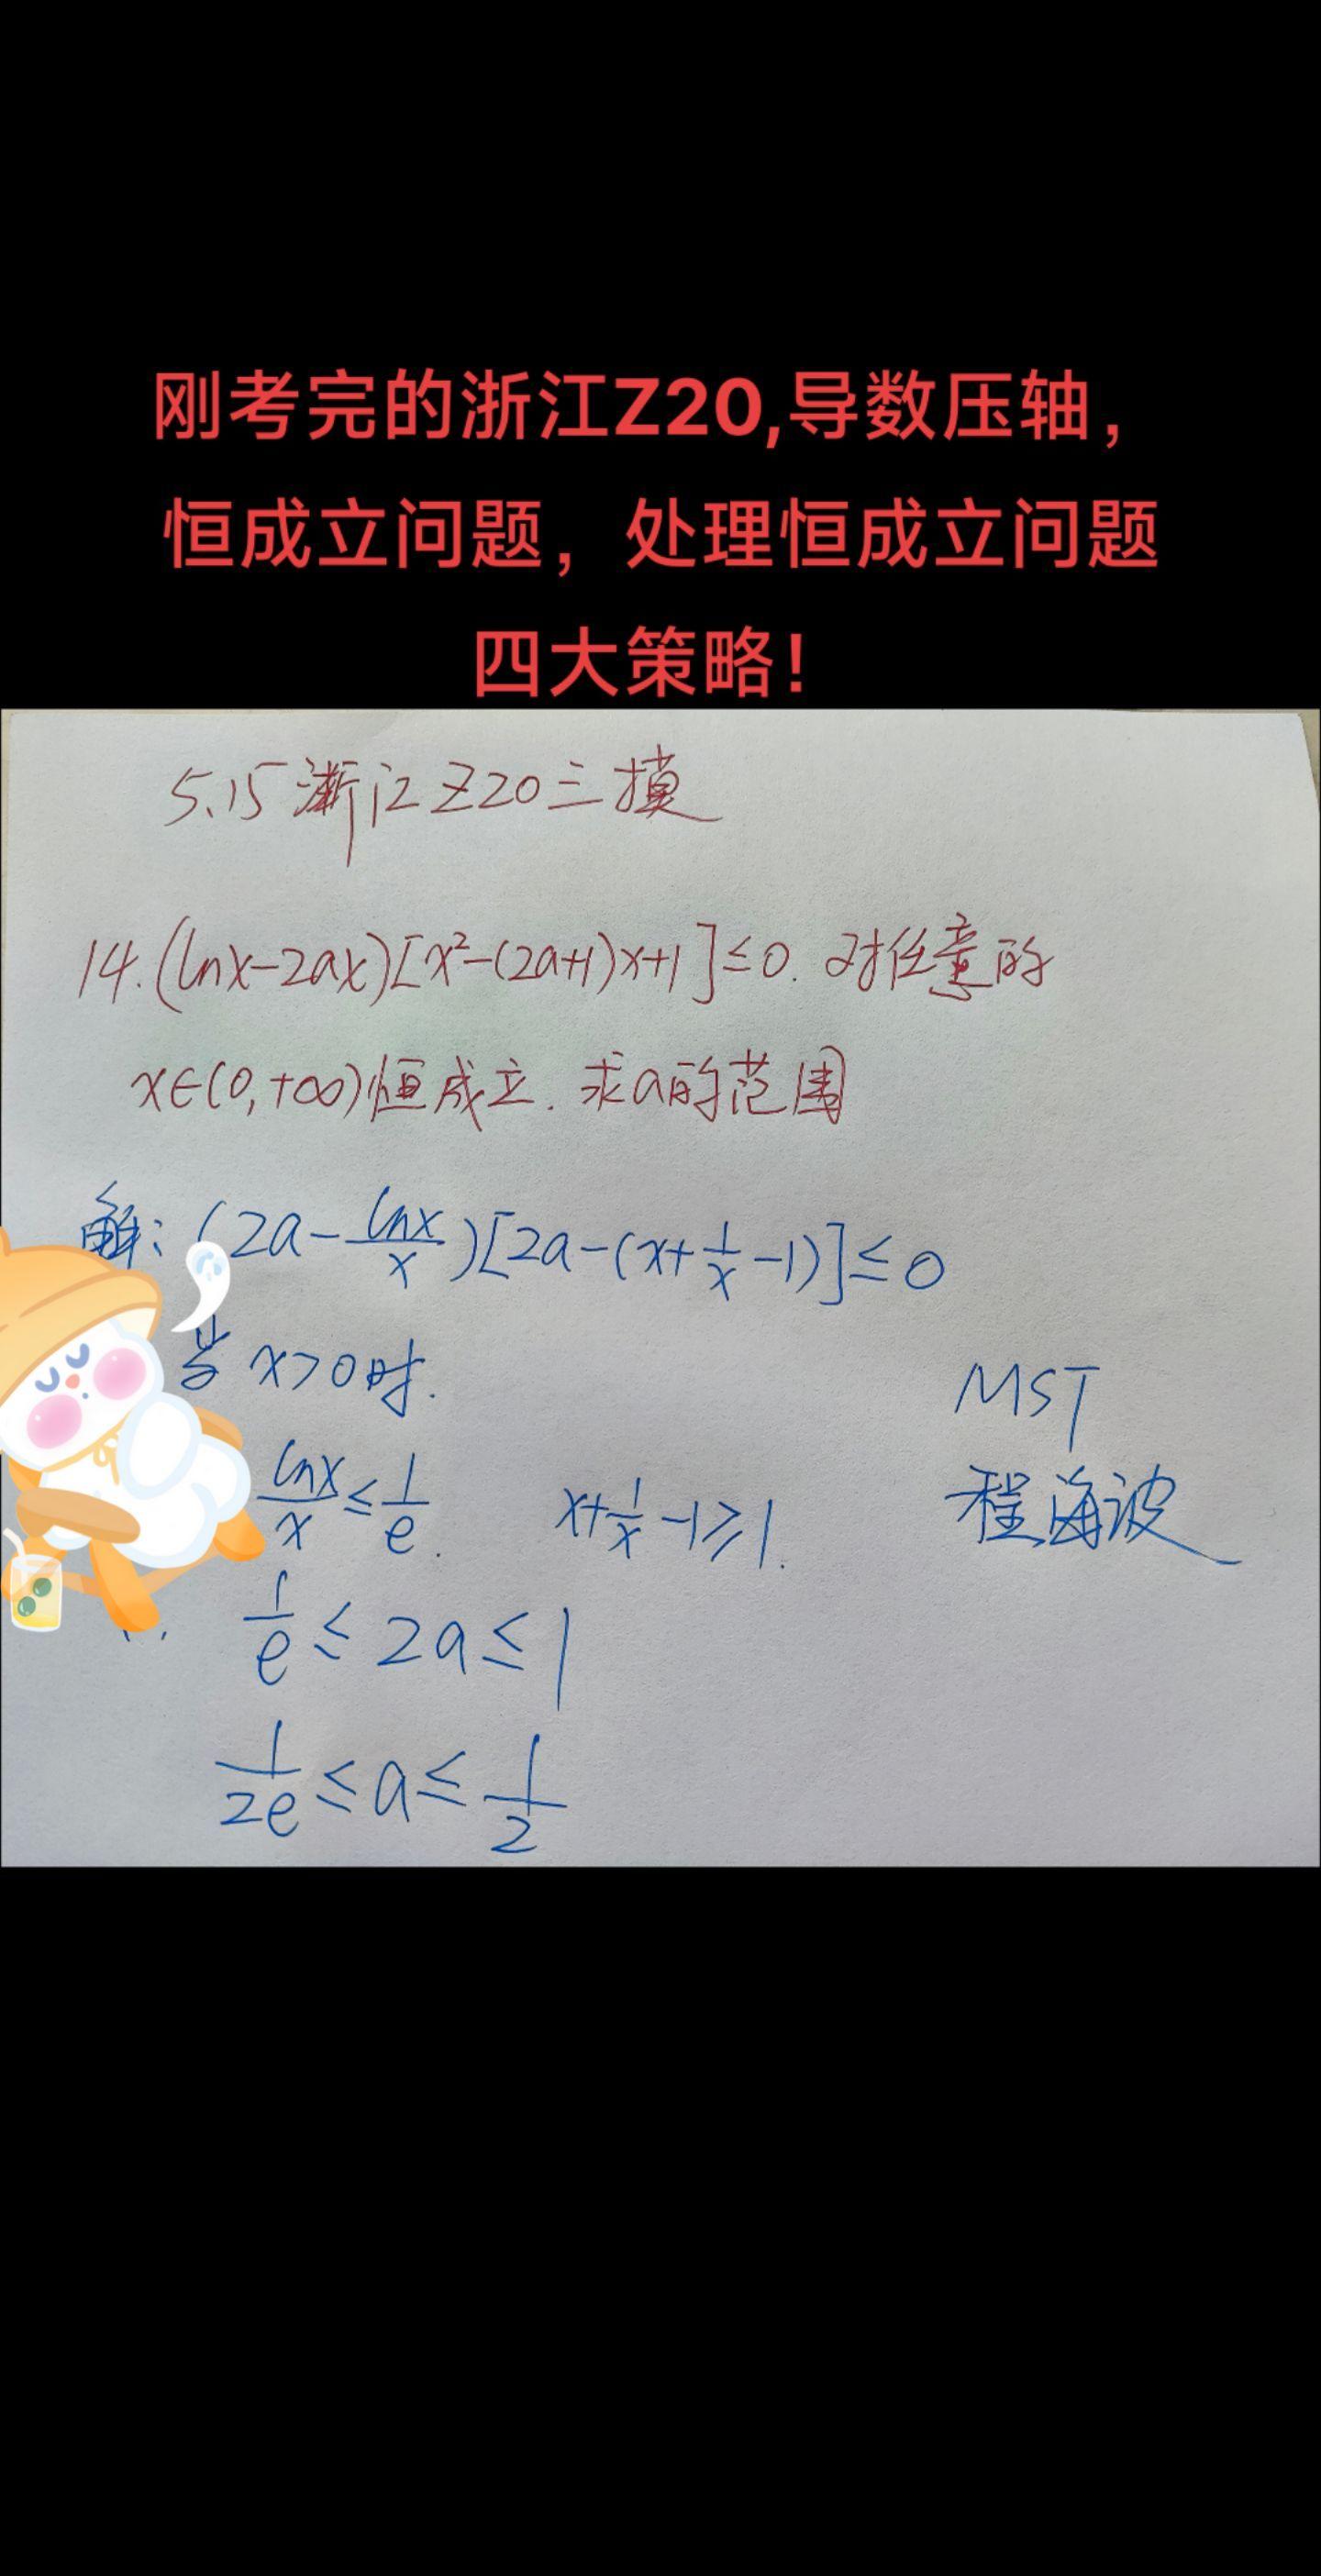 刚考完的浙江Z20,导数压轴，
恒成立问题，处理恒成立问题
四大策略！
5.15浙江Z20三摸
14.(lnx-2ax)[x²-(2a+1)x+1]≤0. 对任意的
x∈(0,+∞)恒成立. 求a的范围
解：(2a-lnx/x)[2a-(x+1/x-1)]≤0
当x>0时.
MST
lnx/x≤1/e. x+1/x-1≥1.
程海波
1/e≤2a≤1
1/2e≤a≤1/2